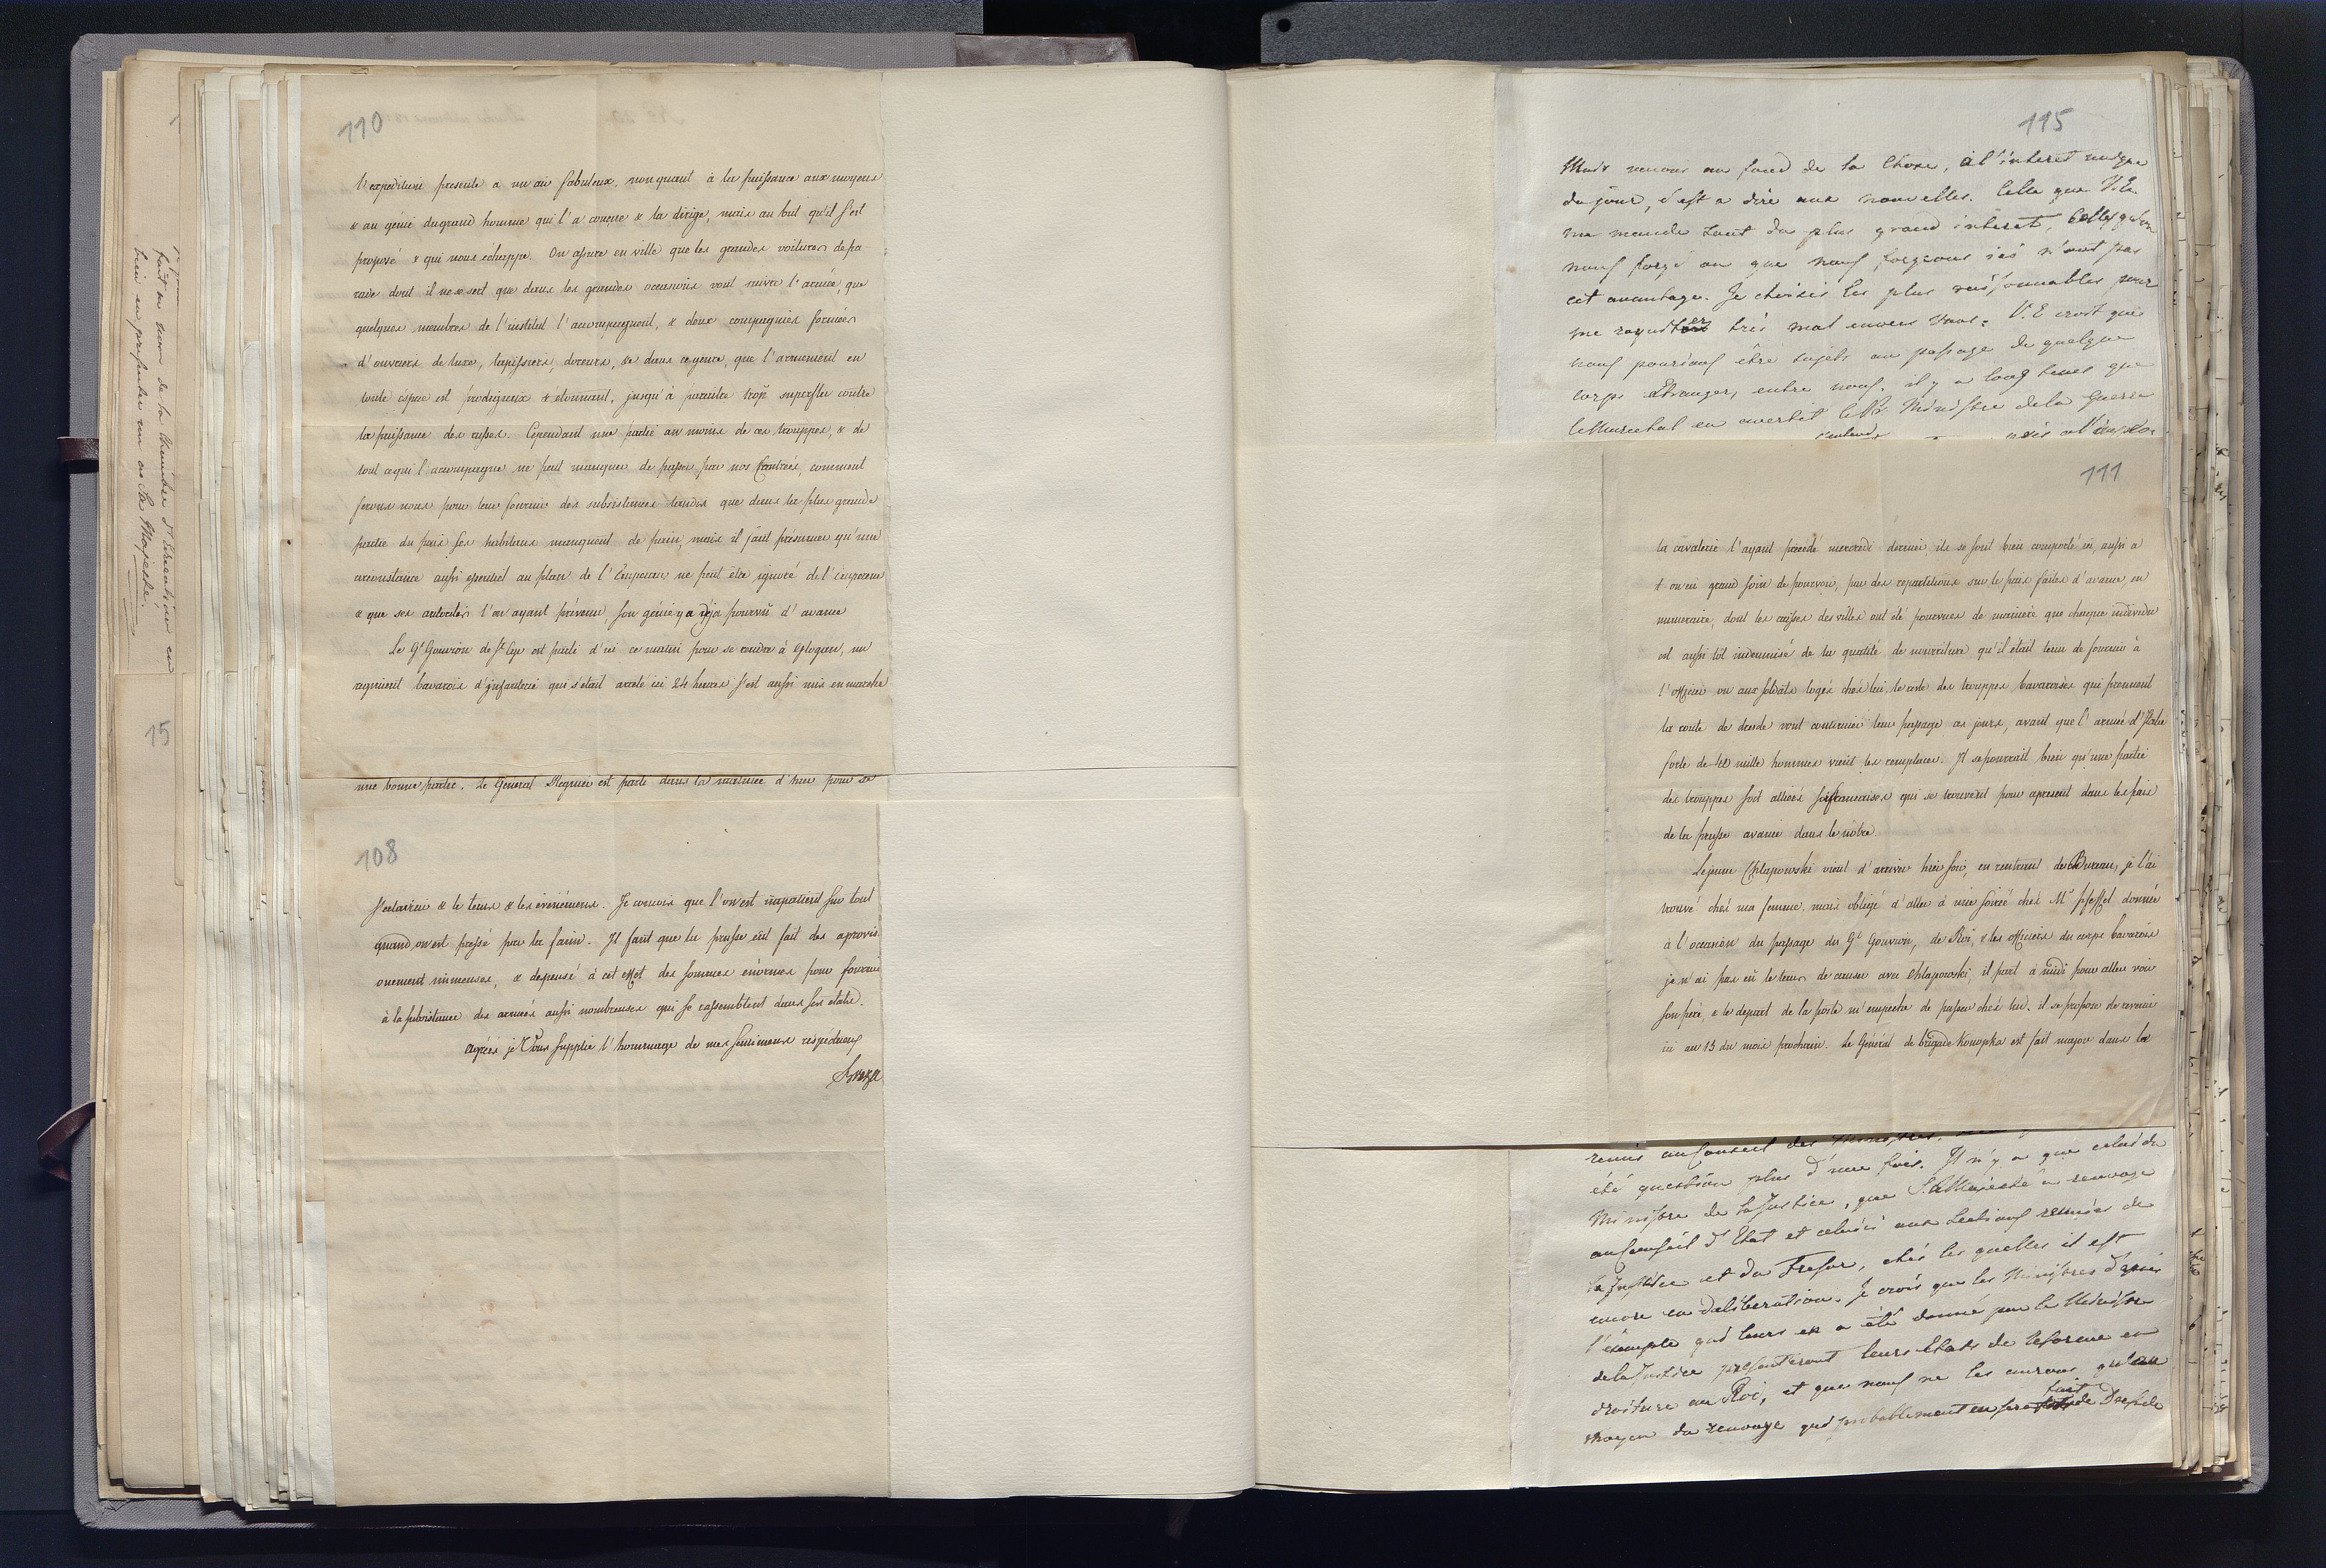 110
l'expedition presente a un air fabuleux, non quant à la puissance aux moyens
& au génie du grand homme qui l'a conçue & la dirige, mais au but qu'il s'est
proposé & qui nous echappe. On assure en ville que les grandes voitures de pa-
rade dont il ne se sert que dans les grandes occasions vont suivre l'armée, que
quelques membres de l'institut l'accompagnent, & deux compagnies formées
d'ouvriers de luxe, tapissiers, doreurs, & dans ce genre, que l'armement en
toute espece est prodigieux & étonnant, jusqu'à paraitre trop superflu contre
la puissance des russes. Cependant une partie au moins de ces trouppes, & de
tout ce qui l'accompagne ne peut manquer de passer par nos Contrées, comment
ferons nous pour leur fournir des subsistances tandis que dans la plus grande
partie du païs les habitans manquent de pain, mais il faut présumer qu'une
circonstance aussi essentiel au plan de l'Empereur ne peut etre ignoré de l'empereur
& que ses autorités l'en ayant prévenu, son génie y a déja pourvû d'avance
Le Gl Gouvion de St Cyr est parti d'ici ce matin pour se rendre à Glogau, un
regiment bavarois d'infanterie qui s'etait arreté ici 24 heures s'est aussi mis en marche
une bonne partie. Le General Regnier est parti dans la matinée d'hier pour se
108
s'eclaircir & le tems & les évenémens. Je conçois que l'on est impatient sur tout
quand on est pressé par la faim. Il faut que la prusse eût fait des aprovis
onement immenses, & depensé à cet effet des sommes énormes pour fournir
à la subsistance des armées aussi nombreuses qui se rassemblent dans ses états.
Agréés je Vous supplie l'hommage de mes sentimens respectueux
Breza
fait au nom de la Chambre d'Education en
bien en presenter un à Sa Majesté.
15
115
Mais venons au fond de la chose, à l'interet unique
du jour, c'est a dire aux nouvelles. Celle que V. E.
me mande sont du plus grand interet, Celles qu'on
nous forge ou que nous forgeons ici n'ont pas
cet avantage. Je choisis les plus raisonnables pour
me racquitter très mal envers Vous. V. E croit que
nous pourions être sujets au passage de quelque
corps etranger, entre nous, il y a long tems que
le Marechal en avertit le Pr. Ministre de la Guerre
111
la cavalerie l'ayant précédé mercredi dernier, ils se sont bien comporté ici, aussi a
t-on eu grand soin de pourvoir, par des repartitions sur le païs faites d'avance en
numeraire, dont les caisses des villes ont été pourvues de manière que chaque individu
est aussi tôt indemnisé de la quotité de nourriture qu'il était tenu de fournir à
l'officier ou aux soldats logés chés lui, le reste des trouppes bavaroises qui prennent
la route de dresde vont continuer leur passage ces jours, avant que l'armée d'Italie
forte de 40 mille hommes vient les remplacer. Il se pourrait bien qu'une partie
des trouppes soit alliées soit francaises qui se trouvent pour apresent dans les païs
de la prusse avance dans le nôtre.
Le jeune Chlapowski vient d'arriver hier soir, en rentrant du Bureau, je l'ai
trouvé chés ma femme, mais obligé d'aller à une soirée chés Mr Pfeffel donnée
à l'occasion du passage du Gl Gouvion, de Roi, & les officiers du corps bavarois
je n'ai pas eû le tems de causer avec Chlapowski, il part à midi pour aller voir
son pere, & le depart de la poste m'empeche de passer chés lui, il se propose de revenir
ici au 15 du mois prochain. Le Général de brigade Konopka est fait major dans la
remis au Conseil des Ministres,
été question plus d'une fois. Il n'y a que celui du
Ministre de la Justice, que Sa Majesté a renvoyé
au Conseil d'Etat et celui-ci aux Sections reunies de
la Justice et du Tresor, chés les quelles il est
encore en deliberation. Je crois que les Ministres d'après
l'exemple qui leurs en a été donné par le Ministre
de la Justice presenteront leurs Etats de reforme en
droiture au Roi, et que nous ne les aurons qu'au
moyen du renvoye qui probablement en sera fait de Dresde